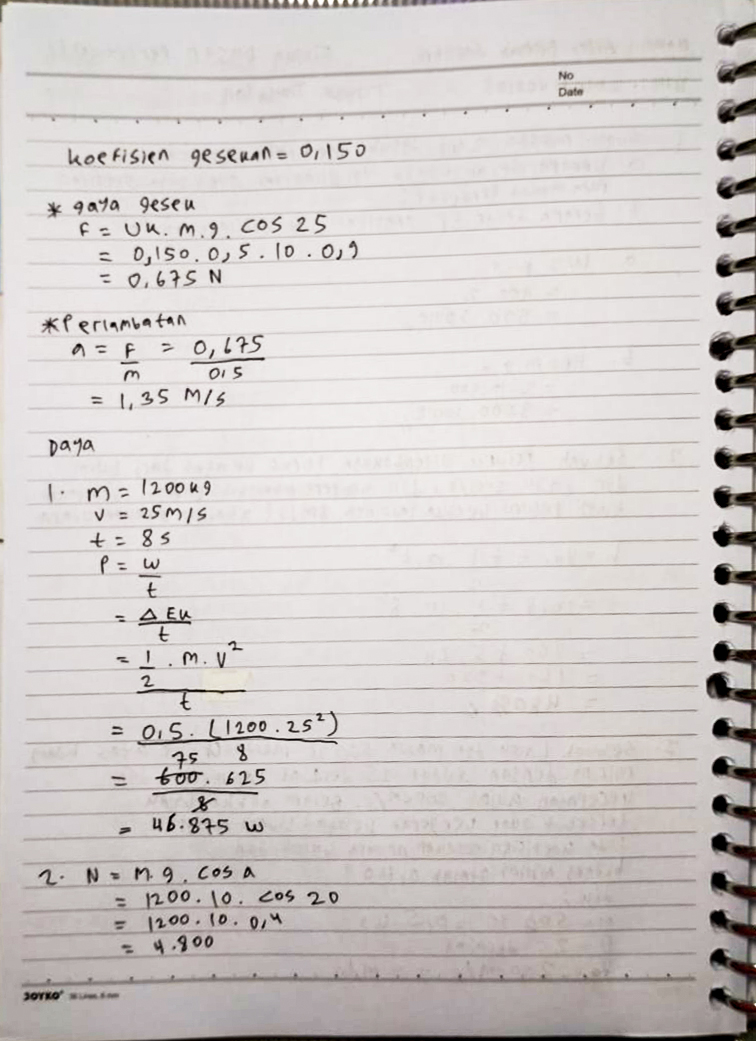 No
Date
koefisien gesekan = 0,150
* gaya gesek
F = Uk. m. g. cos 25
= 0,150. 0,5. 10. 0,9
= 0,675 N
* Perlambatan
a = F/m = 0,675/0,5
= 1,35 M/s
Daya
1. m = 1200 kg
v = 25 M/s
t = 8 s
P = w/t
= Δ Ek/t
= 1/2 . m. v²/t
= 0,5. (1200. 25²)/8
75
= 600. 625/8
= 46.875 w
2. N = m. g. cos a
= 1200. 10. cos 20
= 1200. 10. 0,4
= 4.800
JOYKO